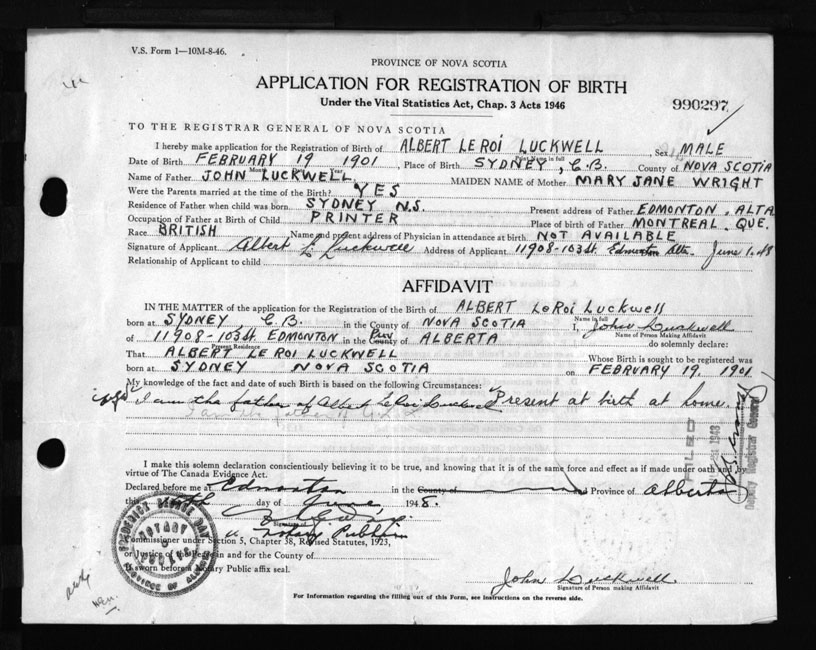 V.S. Form 1—10M-8-46.
PROVINCE OF NOVA SCOTIA
APPLICATION FOR REGISTRATION OF BIRTH
Under the Vital Statistics Act, Chap. 3 Acts 1946
990297
TO THE REGISTRAR GENERAL OF NOVA SCOTIA
I hereby make application for the Registration of Birth of ALBERT LE ROI LUCKWELL Sex MALE
Print Name in full
Date of Birth FEBRUARY 19 1901 Place of Birth SYDNEY, C.B. County of NOVA SCOTIA
Month
Name of Father JOHN LUCKWELL MAIDEN NAME of Mother MARY JANE WRIGHT
Were the Parents married at the time of the Birth? YES
Residence of Father when child was born SYDNEY N.S. Present address of Father EDMONTON, ALTA
Occupation of Father at Birth of Child PRINTER Place of birth of Father MONTREAL, QUE.
Race BRITISH Name and present address of Physician in attendance at birth NOT AVAILABLE
Signature of Applicant Albert L Luckwell Address of Applicant 11908-103 St. Edmonton Alta. June 1.48
Relationship of Applicant to child
AFFIDAVIT
IN THE MATTER of the application for the Registration of the Birth of ALBERT LeRoi Luckwell
Name in full
born at SYDNEY, C.B. in the County of NOVA SCOTIA I, John Luckwell
Name of Person making Affidavit
of 11908-103 St EDMONTON in the County of Prov ALBERTA do solemnly declare:
Present Residence
That ALBERT LE ROI LUCKWELL Whose Birth is sought to be registered was
born at SYDNEY NOVA SCOTIA on FEBRUARY 19. 1901.
My knowledge of the fact and date of such Birth is based on the following Circumstances:
I am the father of Albert LeRoi Luckwell Present at birth at home.
FILED
1948
Deputy Registrar General
I make this solemn declaration conscientiously believing it to be true, and knowing that it is of the same force and effect as if made under oath and by
virtue of The Canada Evidence Act.
Declared before me at Edmonton in the County of and Province of Alberta
this day of June, 1948.
Signature of
a Notary Public in
Commissioner under Section 5, Chapter 38, Revised Statutes, 1923,
or Justice of the Peace in and for the County of
If sworn before a Notary Public affix seal.
NOTARY
PUBLIC
PROVINCE OF ALBERTA
John Luckwell
Signature of Person making Affidavit
For Information regarding the filling out of this Form, see instructions on the reverse side.